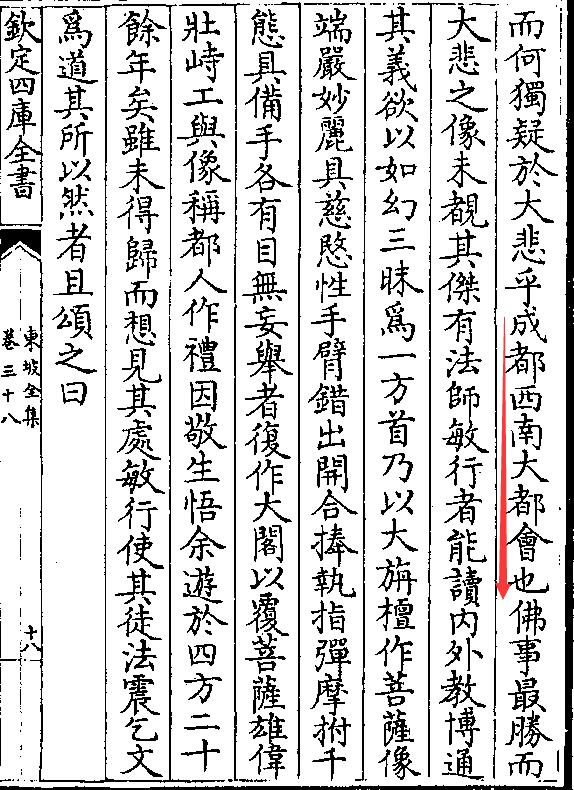 而何獨疑於大悲乎成都西南大都會也佛事最勝而
大悲之像未覩其傑有法師敏行者能讀内外教博通
其義欲以如幻三昧爲一方首乃以大旃檀作菩薩像
端嚴妙麗具慈愍性手臂錯出開合捧執指彈摩拊千
態具備手各有目無妄舉者復作大閣以覆菩薩雄偉
壯峙工與像稱都人作禮因敬生悟余遊於四方二十
餘年矣雖未得歸而想見其處敏行使其徒法震乞文
爲道其所以然者且頌之曰
欽定四庫全書
東坡全集
卷三十八
十八